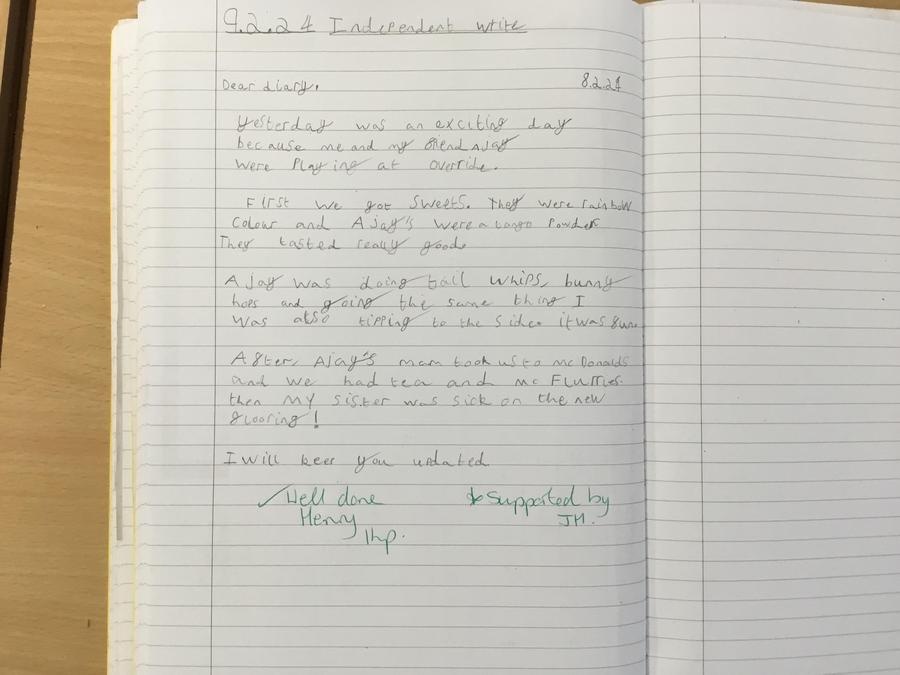 9.2.24 Independent write
Dear diary. 8.2.24
Yesterday was an exciting day
because me and my friend Ajay
were Playing at override.
First we got sweets. They were rainbow
colour and Ajay's were a tango Powder
They tasted really good.
Ajay was doing tail whips, bunny
hops and going the same thing I
was also tipping to the side. it was fun.
After, Ajay's mam took us to mc Donalds
and we had tea and mc Flurries.
then My sister was sick on the new
flooring!
I will keep you updated
✓Well done
Henry
1hp.
Supported by
JH.